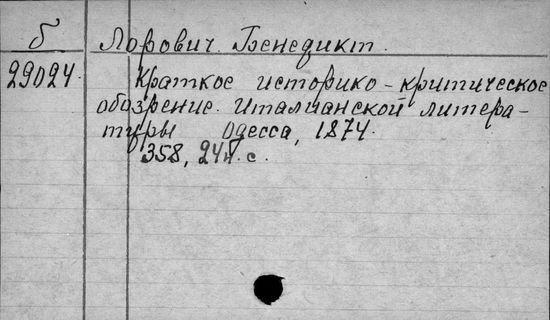 б
Лорович. Бенедикт.
29024.
Краткое историко-критическое
обозрение. Италианской литера-
туры Одесса, 1874.
358, 24 с.